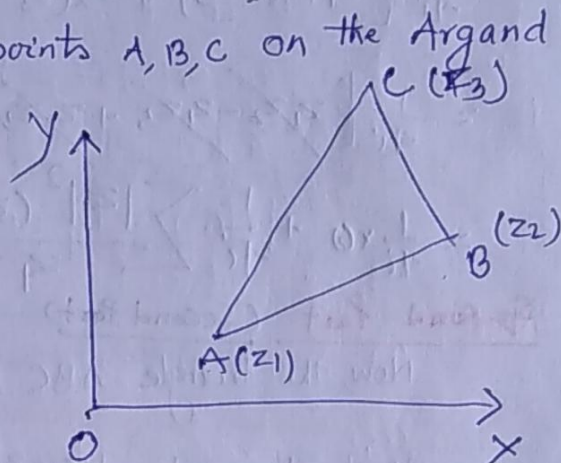 points A, B, C on the Argand
C (z3)
y
(z2)
B
A(z1)
O
X